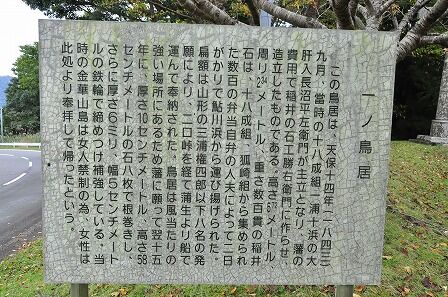 一ノ鳥居
この鳥居は、天保十四年(一八四三)
九月、當時の十八成組二浦十浜の大
肝入長沼平左衛門が主立となり、藩の
費用で稲井の石工勝右衛門に作らせ、
造立したものである。高さ5.67メートル
周り2.34メートル、重さ数百貫の稲井
石は、十八成組、狐崎組から集められ
た数百の弁当自弁の人夫によって二日
がかりで鮎川浜から運び揚げられた。
扁額は山形の三浦権四郎以下八名の発
願により、二口峠を経て蒲生より船で
運んで奉納された。鳥居は風当たりの
強い場所にあるため藩に願って翌十五
年に、厚さ10センチメートル、高さ58
センチメートルの石八枚で根巻きし、
さらに厚さ6ミリ、幅5センチメート
ルの鉄輪で締めつけ補強している。当
時の金華山島は女人禁制の為、女性は
此処より奉拝して帰ったという。